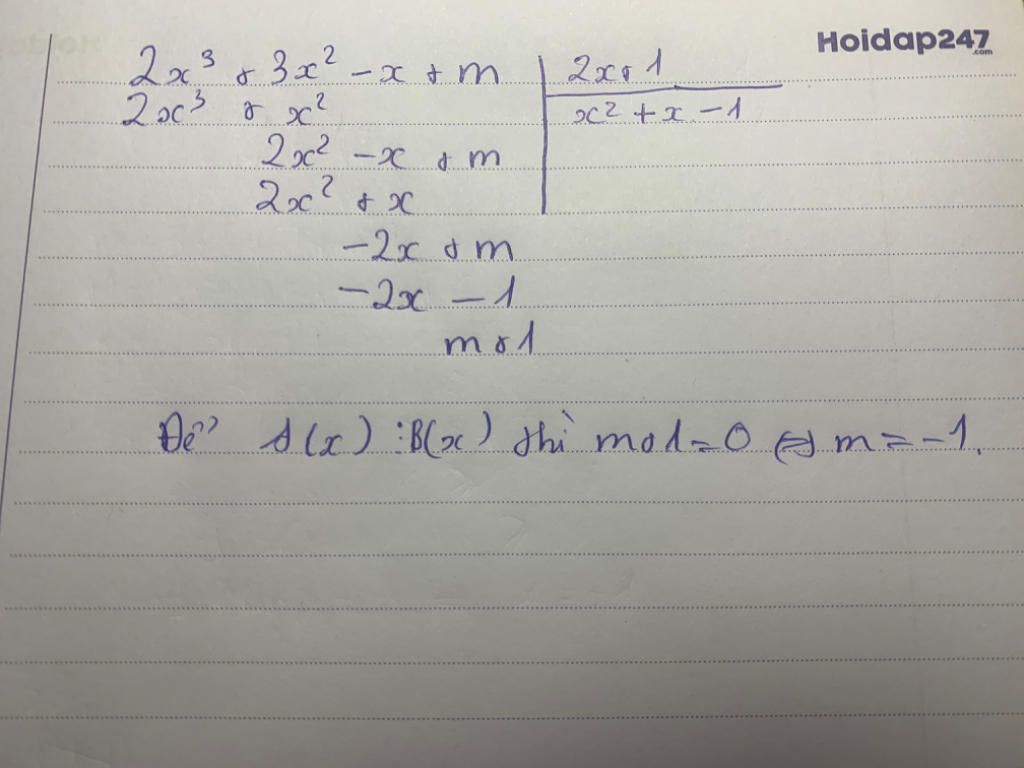 Hoidap247
.com
2x³ + 3x² - x + m | 2x + 1
2x³ + x² | x² + x - 1
2x² - x + m
2x² + x
-2x + m
-2x - 1
m + 1
Để A(x) ⋮ B(x) thì m + 1 = 0 ⇔ m = -1.